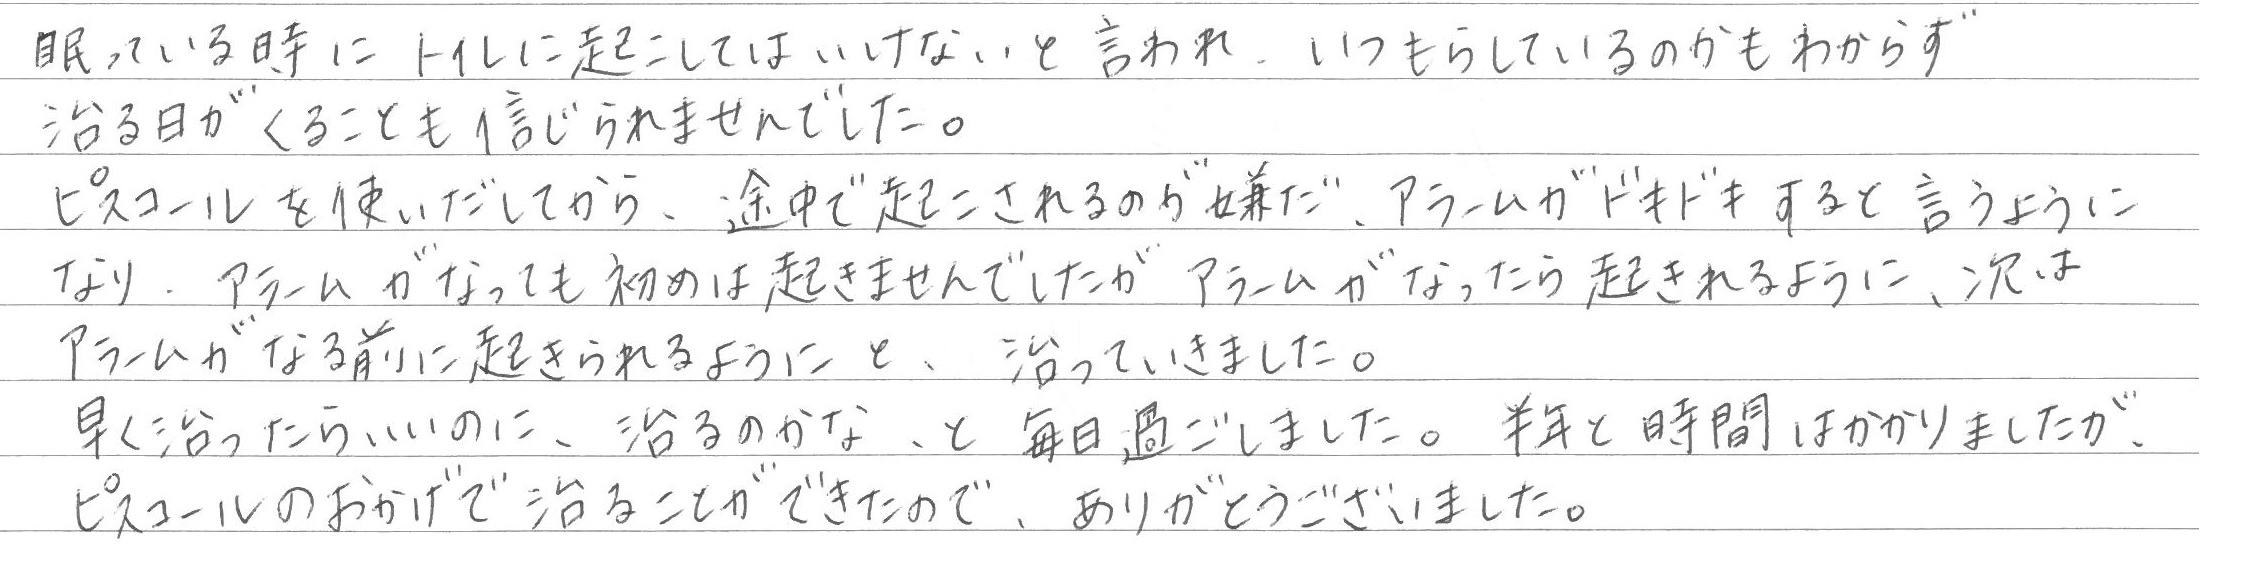 眠っている時にトイレに起こしてはいけないと言われ、いつもらしているのかもわからず
治る日がくることも信じられませんでした。
ピスコールを使いだしてから、途中で起こされるのが嫌だ、アラームがドキドキすると言うように
なり、アラームがなっても初めは起きませんでしたがアラームがなったら起きれるように、次は
アラームがなる前に起きられるようにと、治っていきました。
早く治ったらいいのに、治るのかな、と毎日過ごしました。半年と時間はかかりましたが、
ピスコールのおかげで治ることができたので、ありがとうございました。